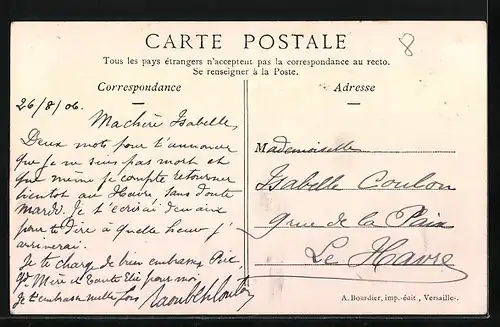 CARTE POSTALE
8
Tous les pays étrangers n'acceptent pas la correspondance au recto.
Se renseigner à la Poste.
Correspondance
Adresse
26/8/06.
Ma chère Isabelle,
Deux mots pour t'annoncer
que je ne suis pas mort et
que même je compte retourner
bientôt au Havre sans doute
Mardi. Je t'écrirai
pour te dire à quelle heure j'
arriverai.
Je te charge de bien embrasser Père,
Mère et Tante pour moi
Je t'embrasse mille fois
Mademoiselle
Isabelle Coulon
9 rue de la Paix
Le Havre
A. Bourdier, imp.-édit, Versailles.